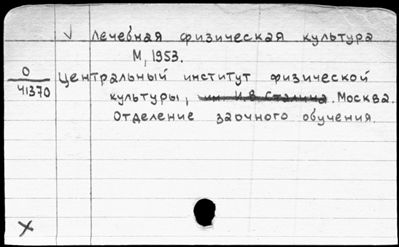 √ Лечебная физическая культура
М, 1953.
О
41370
Центральный институт физической
культуры, им. И.В. Сталина. Москва.
Отделение заочного обучения.
X